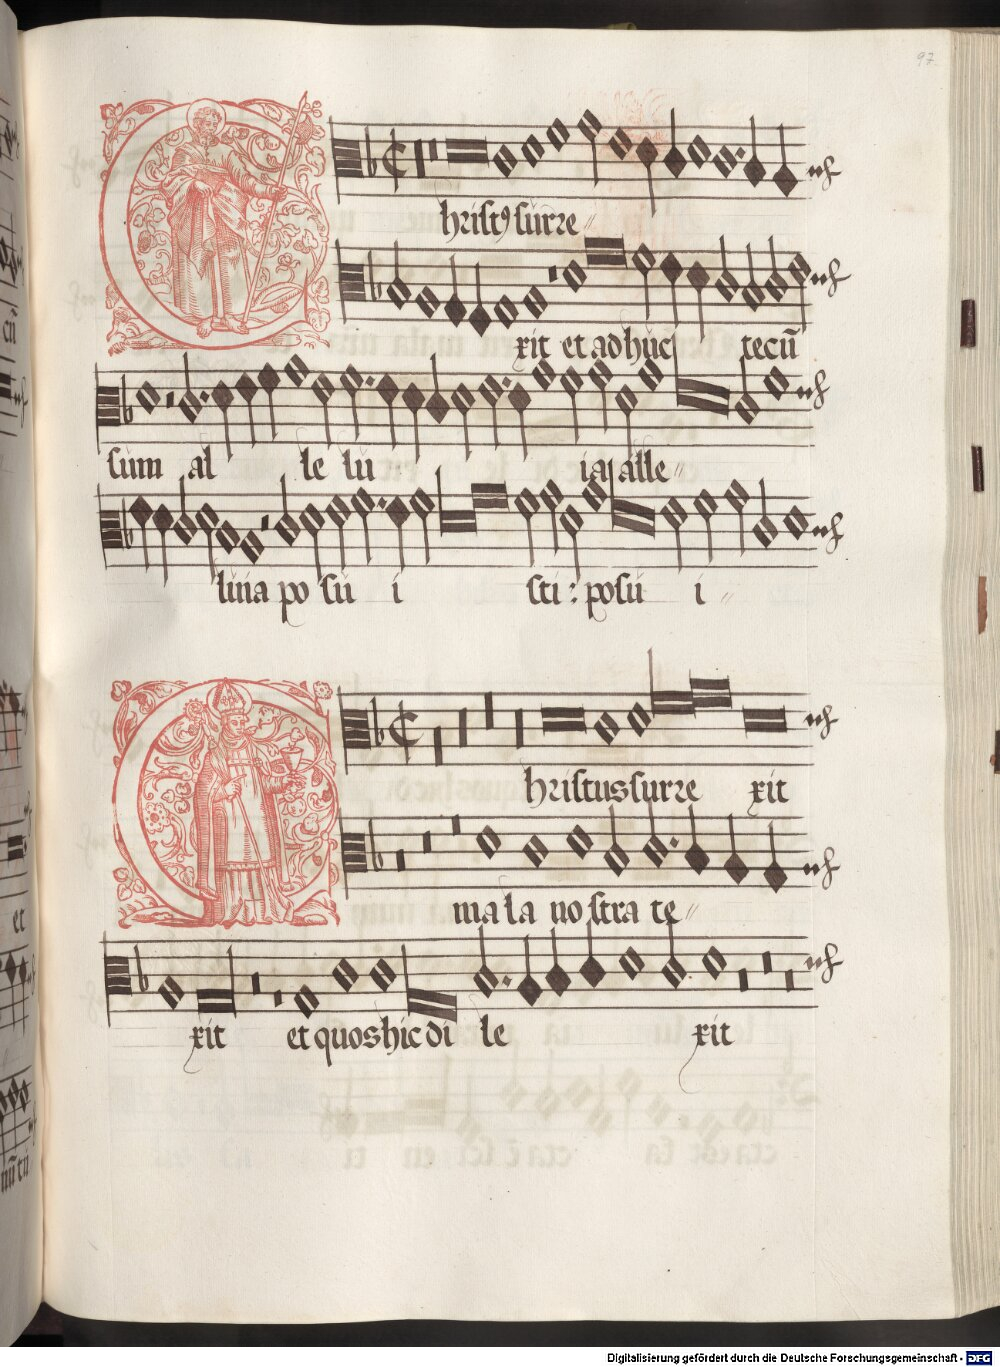 97.
hristꝰ surre
xit et adhuc tecū
sum al le lu ia alle
luia po su i sti : posu i
hristus surre xit
mala nostra te
xit et quos hic di le xit
cū
et
nū tu
Digitalisierung gefördert durch die Deutsche Forschungsgemeinschaft - DFG